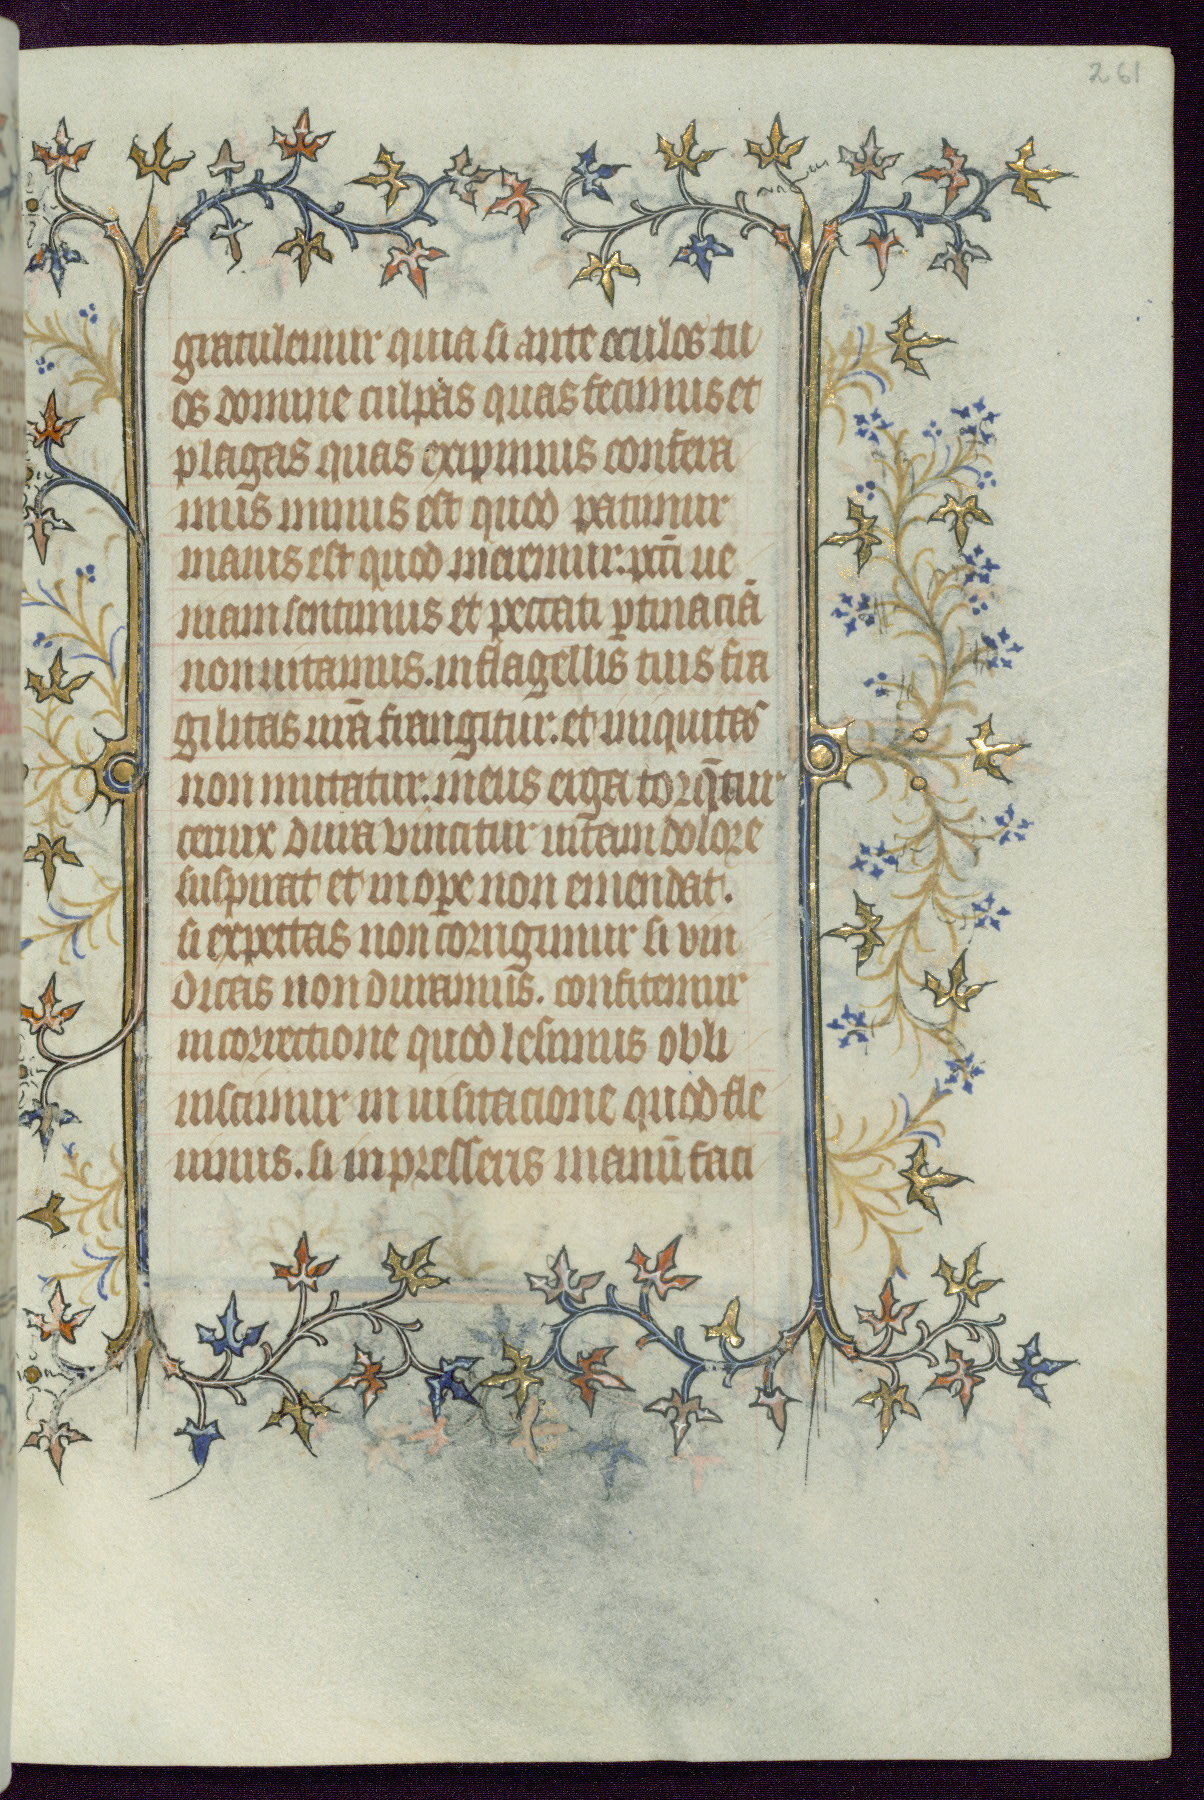 261
gratulemur quia si ante oculos tu
os domine culpas quas fecimus et
plagas quas exipimus confera
mus minus est quod patimur
maius est quod meremur. pcti ue
niam sentimus et peccati ptinaciā
non uitamus. in flagellis tuis fra
gilitas nrā frangitur. et iniquitas
non mutatur. mens erga torq̄tur
ceruix dura vincitur uitam dolore
suspirat et in ope non emendat.
si expectas non corrigimur si vin
dicas non duramus. confitemur
in correctione quod lesimus obli
uiscimur in uisitacione quod fle
uimus. si inpresseris manū faci